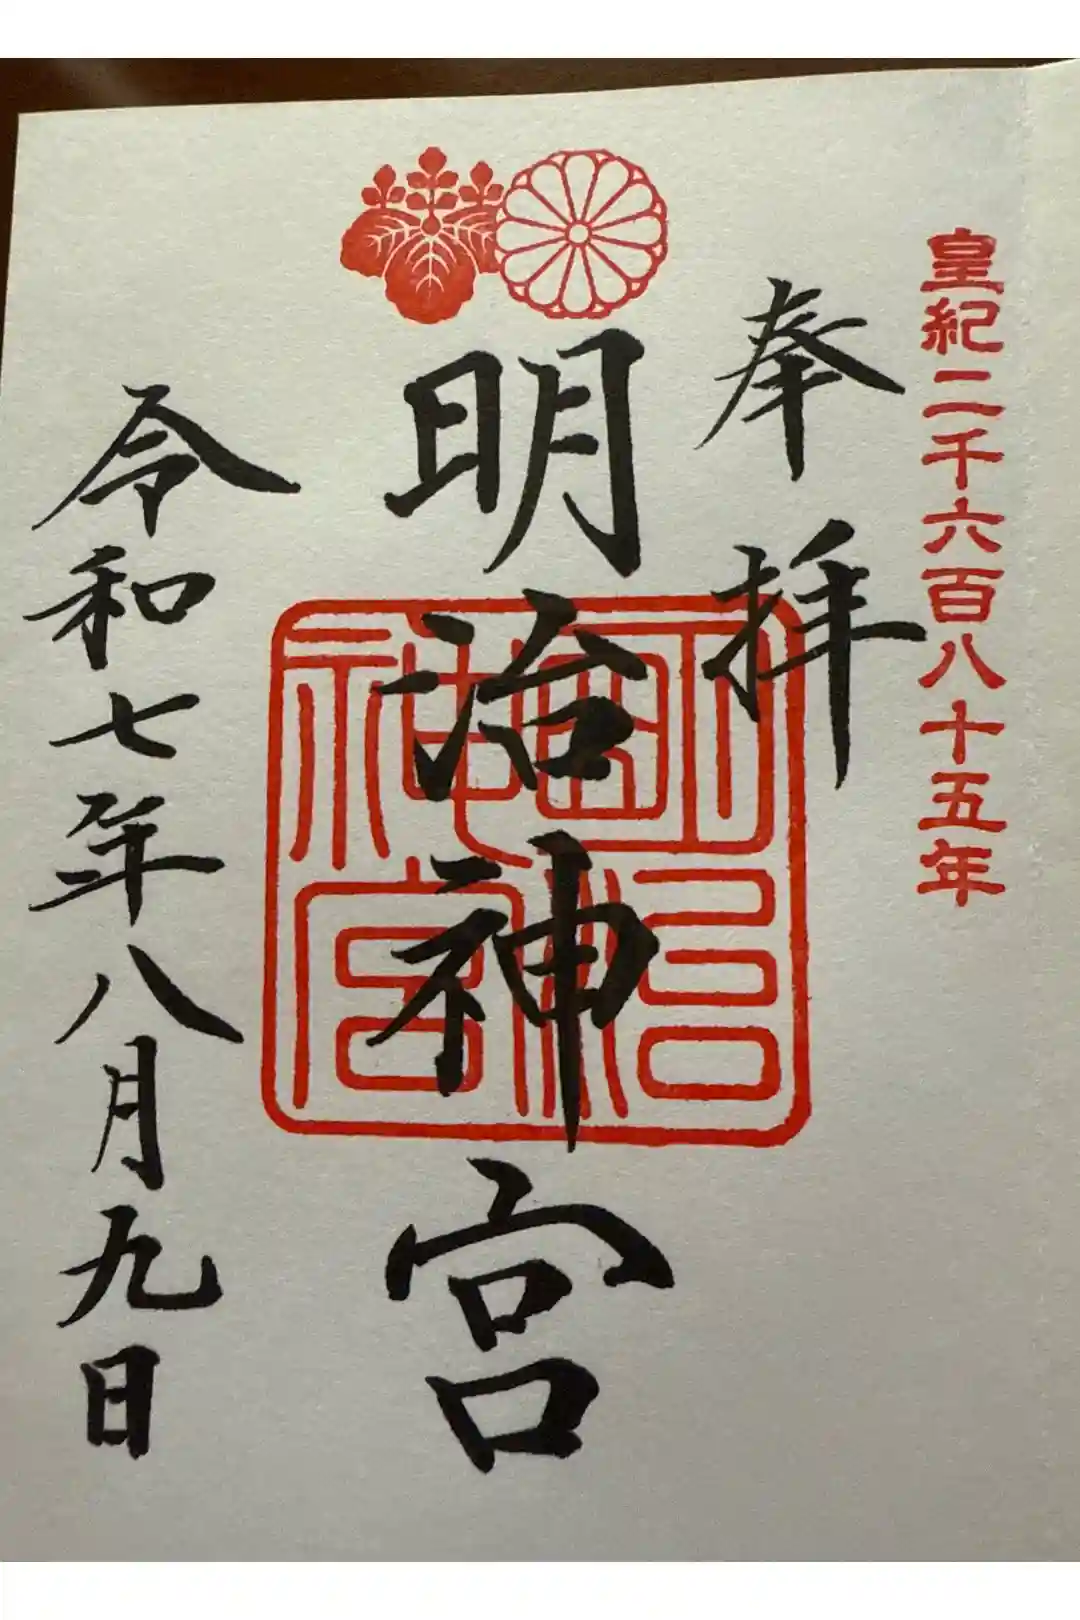 皇紀二千六百八十五年
奉拝
明治神宮
明治神宮
令和七年八月九日